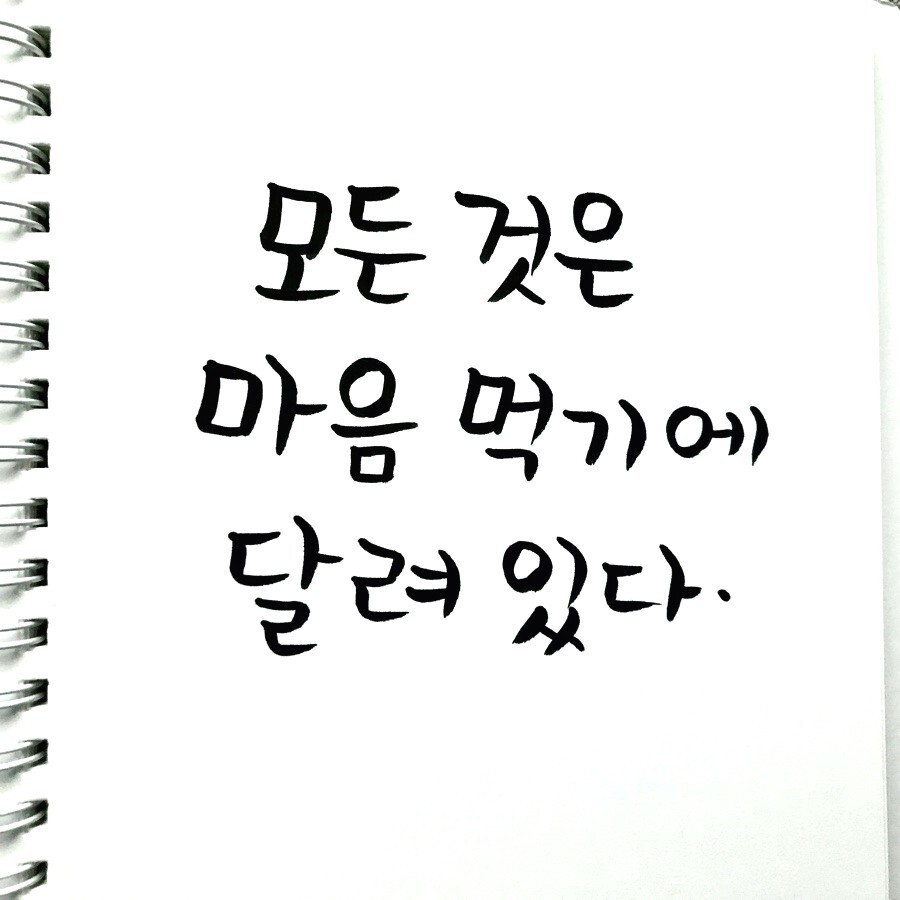 모든 것은
마음 먹기에
달려 있다.